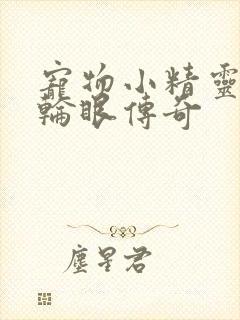 寵物小精靈
輪眼傳奇
塵星君